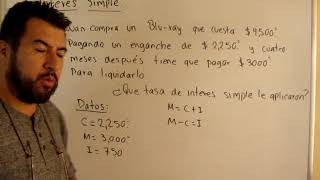 Interés Simple
Juan compra un Blu-ray que cuesta $4500.°
Pagando un enganche de $2,250.° y cuatro
meses después tiene que pagar $3000.°
Para liquidarlo
¿Que tasa de interes simple le aplicaron?
Datos:
C = 2,250.°
M = 3,000.°
I = 750
M = C + I
M - C = I